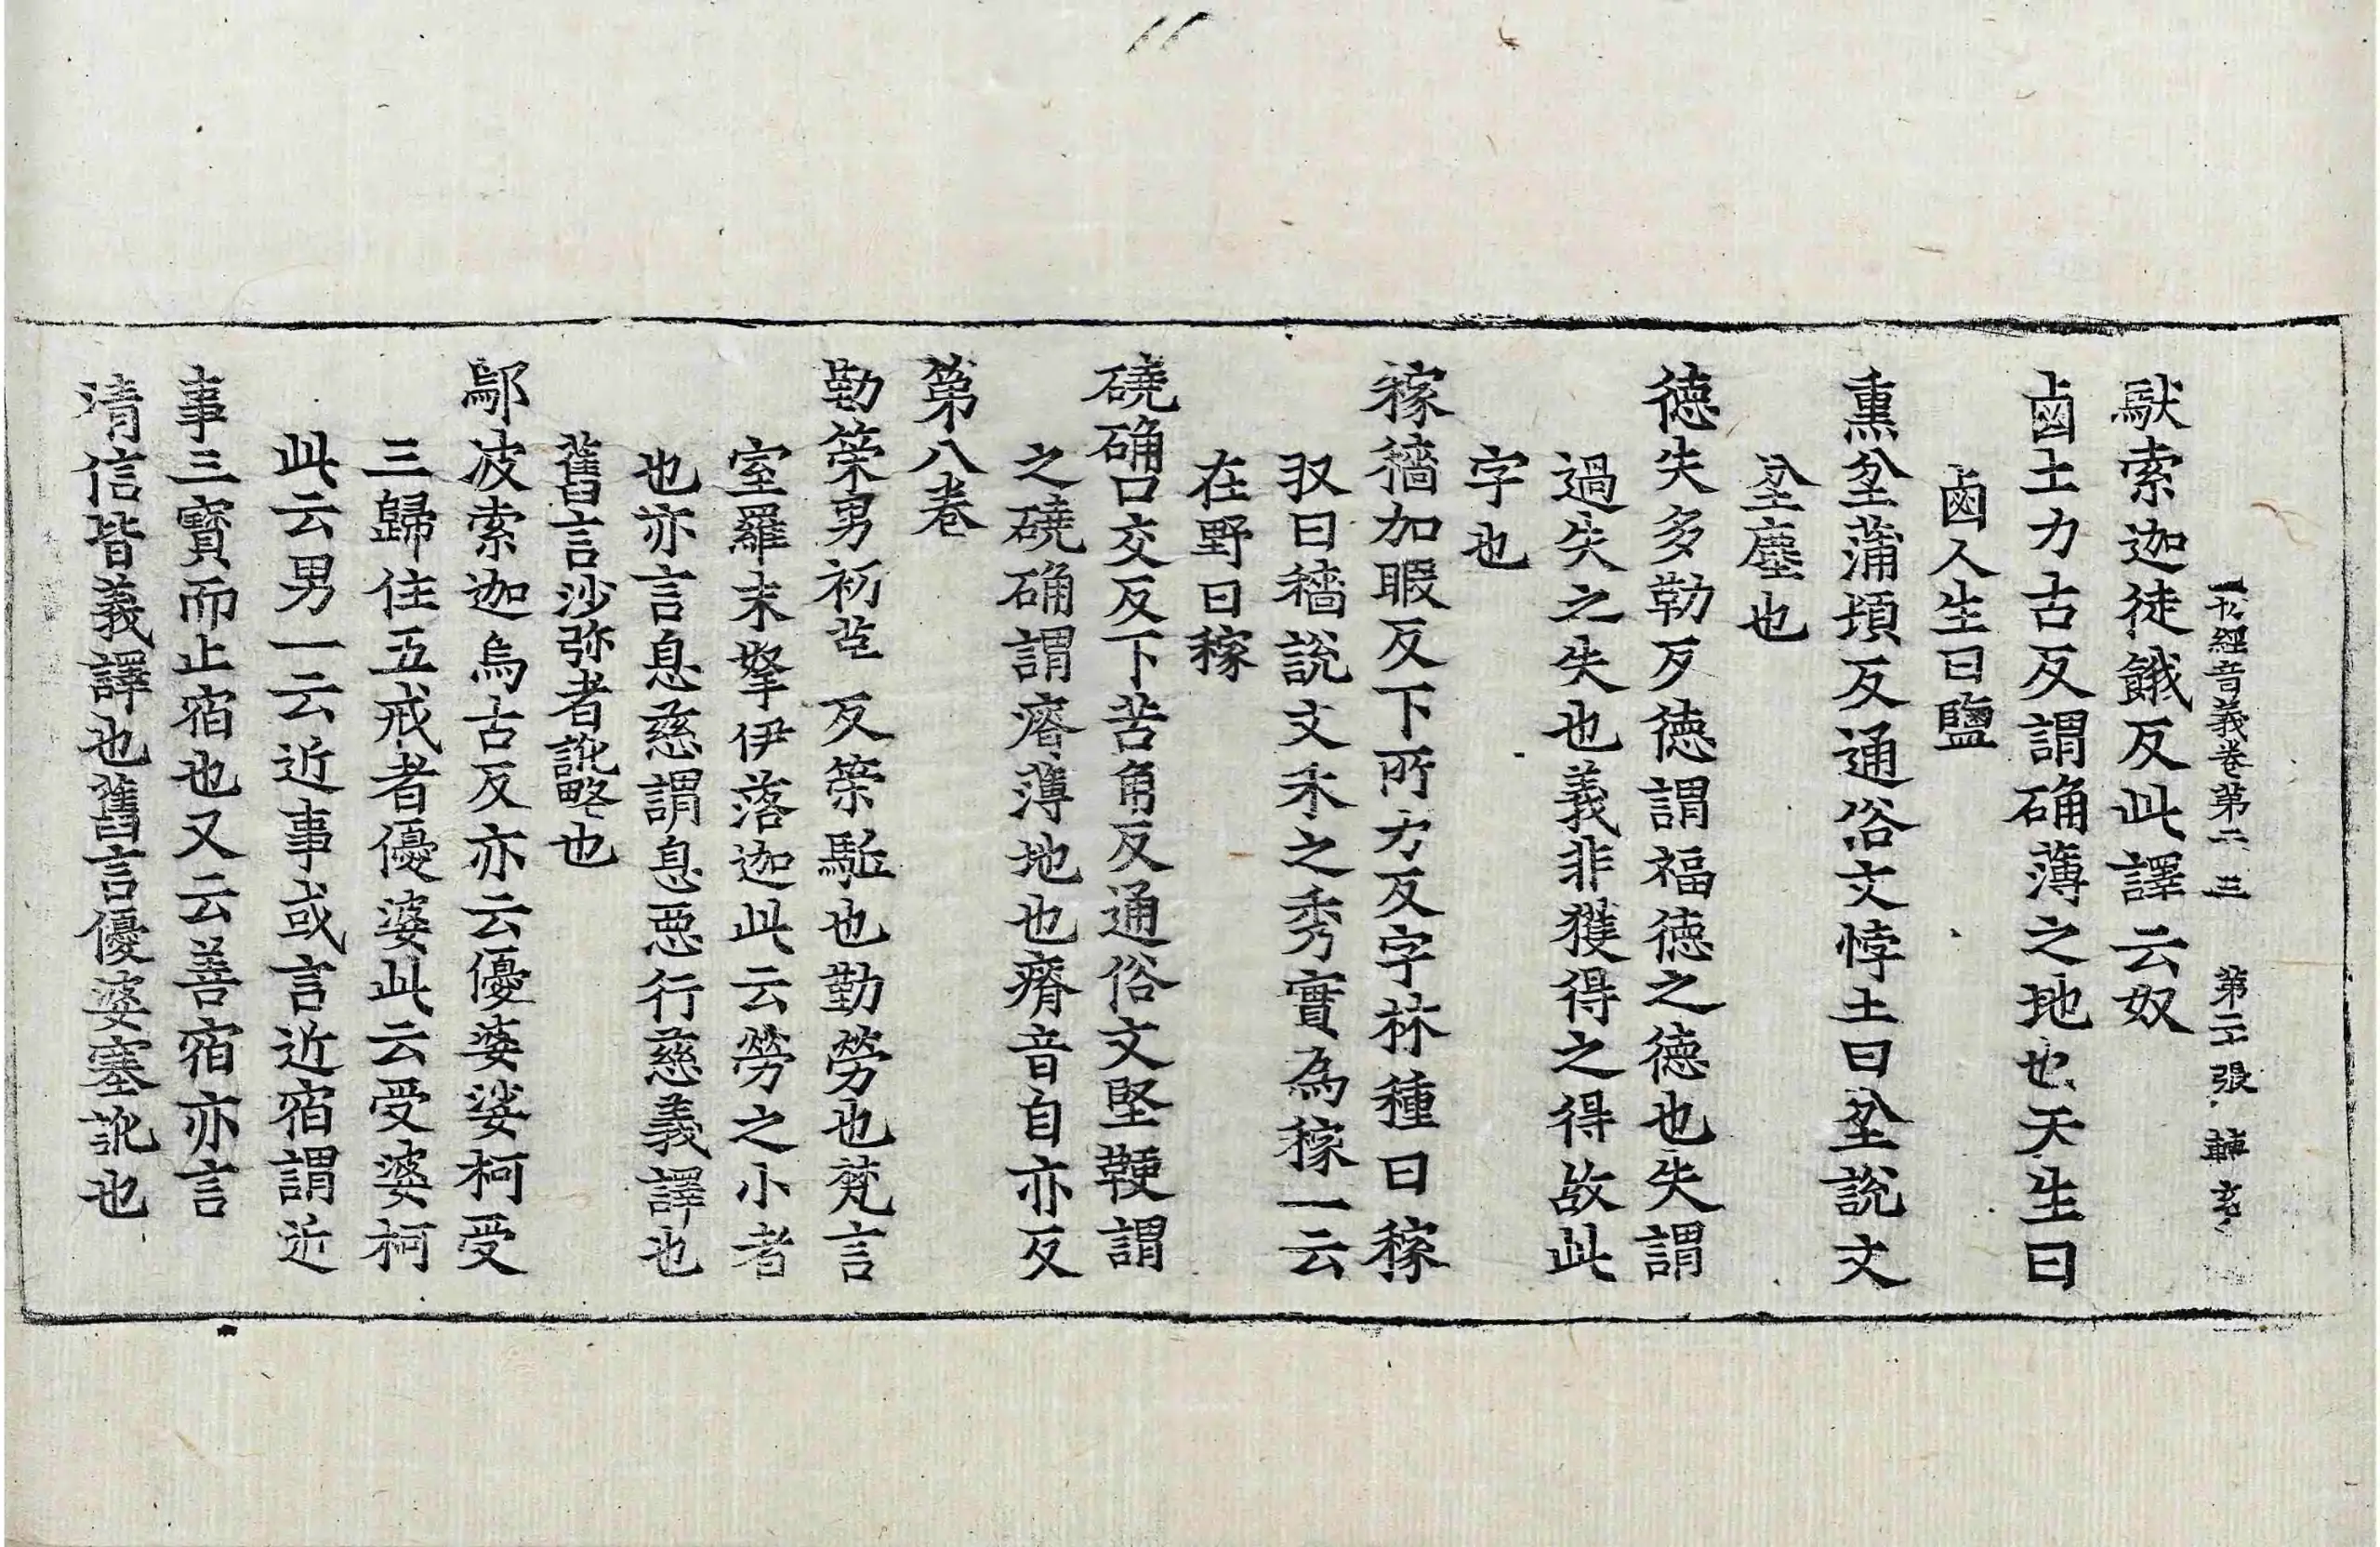 一切經音義卷第二三　第二十張　轉
馱索迦徒餓反此譯云奴
鹵土力古反謂确薄之地也天生曰
鹵人生曰鹽
熏坌蒲頊反通俗文悖土曰坌說文
坌塵也
德失多勒反德謂福德之德也失謂
過失之失也義非獲得之得故此
字也
稼穡加暇反下所力反字林種曰稼
収曰穡說文禾之秀實為稼一云
在野曰稼
磽确口交反下苦角反通俗文堅鞕謂
之磽确謂瘠薄地也瘠音自亦反
第八卷
勤策男初革反策駈也勤勞也梵言
室羅末拏伊落迦此云勞之小者
也亦言息慈謂息惡行慈義譯也
舊言沙弥者訛略也
鄔波索迦烏古反亦云優婆娑柯受
三歸住五戒者優婆此云受婆柯
此云男一云近事或言近宿謂近
事三寶而止宿也又云善宿亦言
清信皆義譯也舊言優婆塞訛也